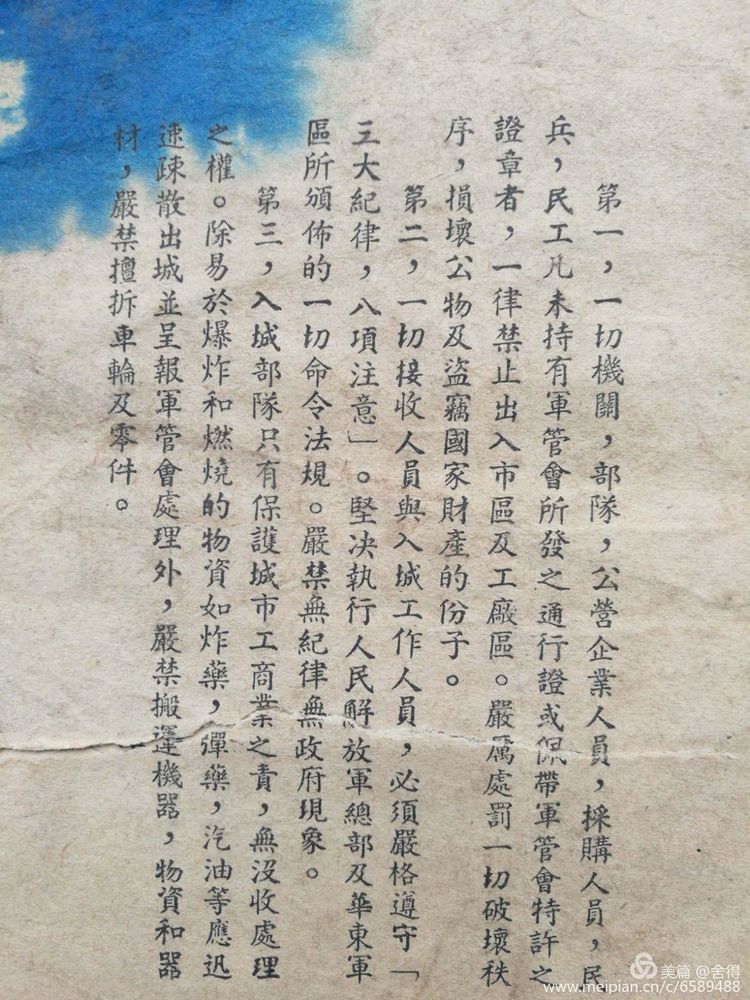 第一，一切機關，部隊，公營企業人員，採購人員，民
兵，民工凡未持有軍管會所發之通行證或佩帶軍管會特許之
證章者，一律禁止出入市區及工廠區。嚴厲處罰一切破壞秩
序，損壞公物及盜竊國家財產的份子。
第二，一切接收人員與入城工作人員，必須嚴格遵守「
三大紀律，八項注意」。堅决執行人民解放軍總部及華東軍
區所頒佈的一切命令法規。嚴禁無紀律無政府現象。
第三，入城部隊只有保護城市工商業之責，無沒收處理
之權。除易於爆炸和燃燒的物資如炸藥，彈藥，汽油等應迅
速疎散出城並呈報軍管會處理外，嚴禁搬運機器，物資和器
材，嚴禁擅拆車輪及零件。
美篇 @舍得
www.meipian.cn/c/6589488